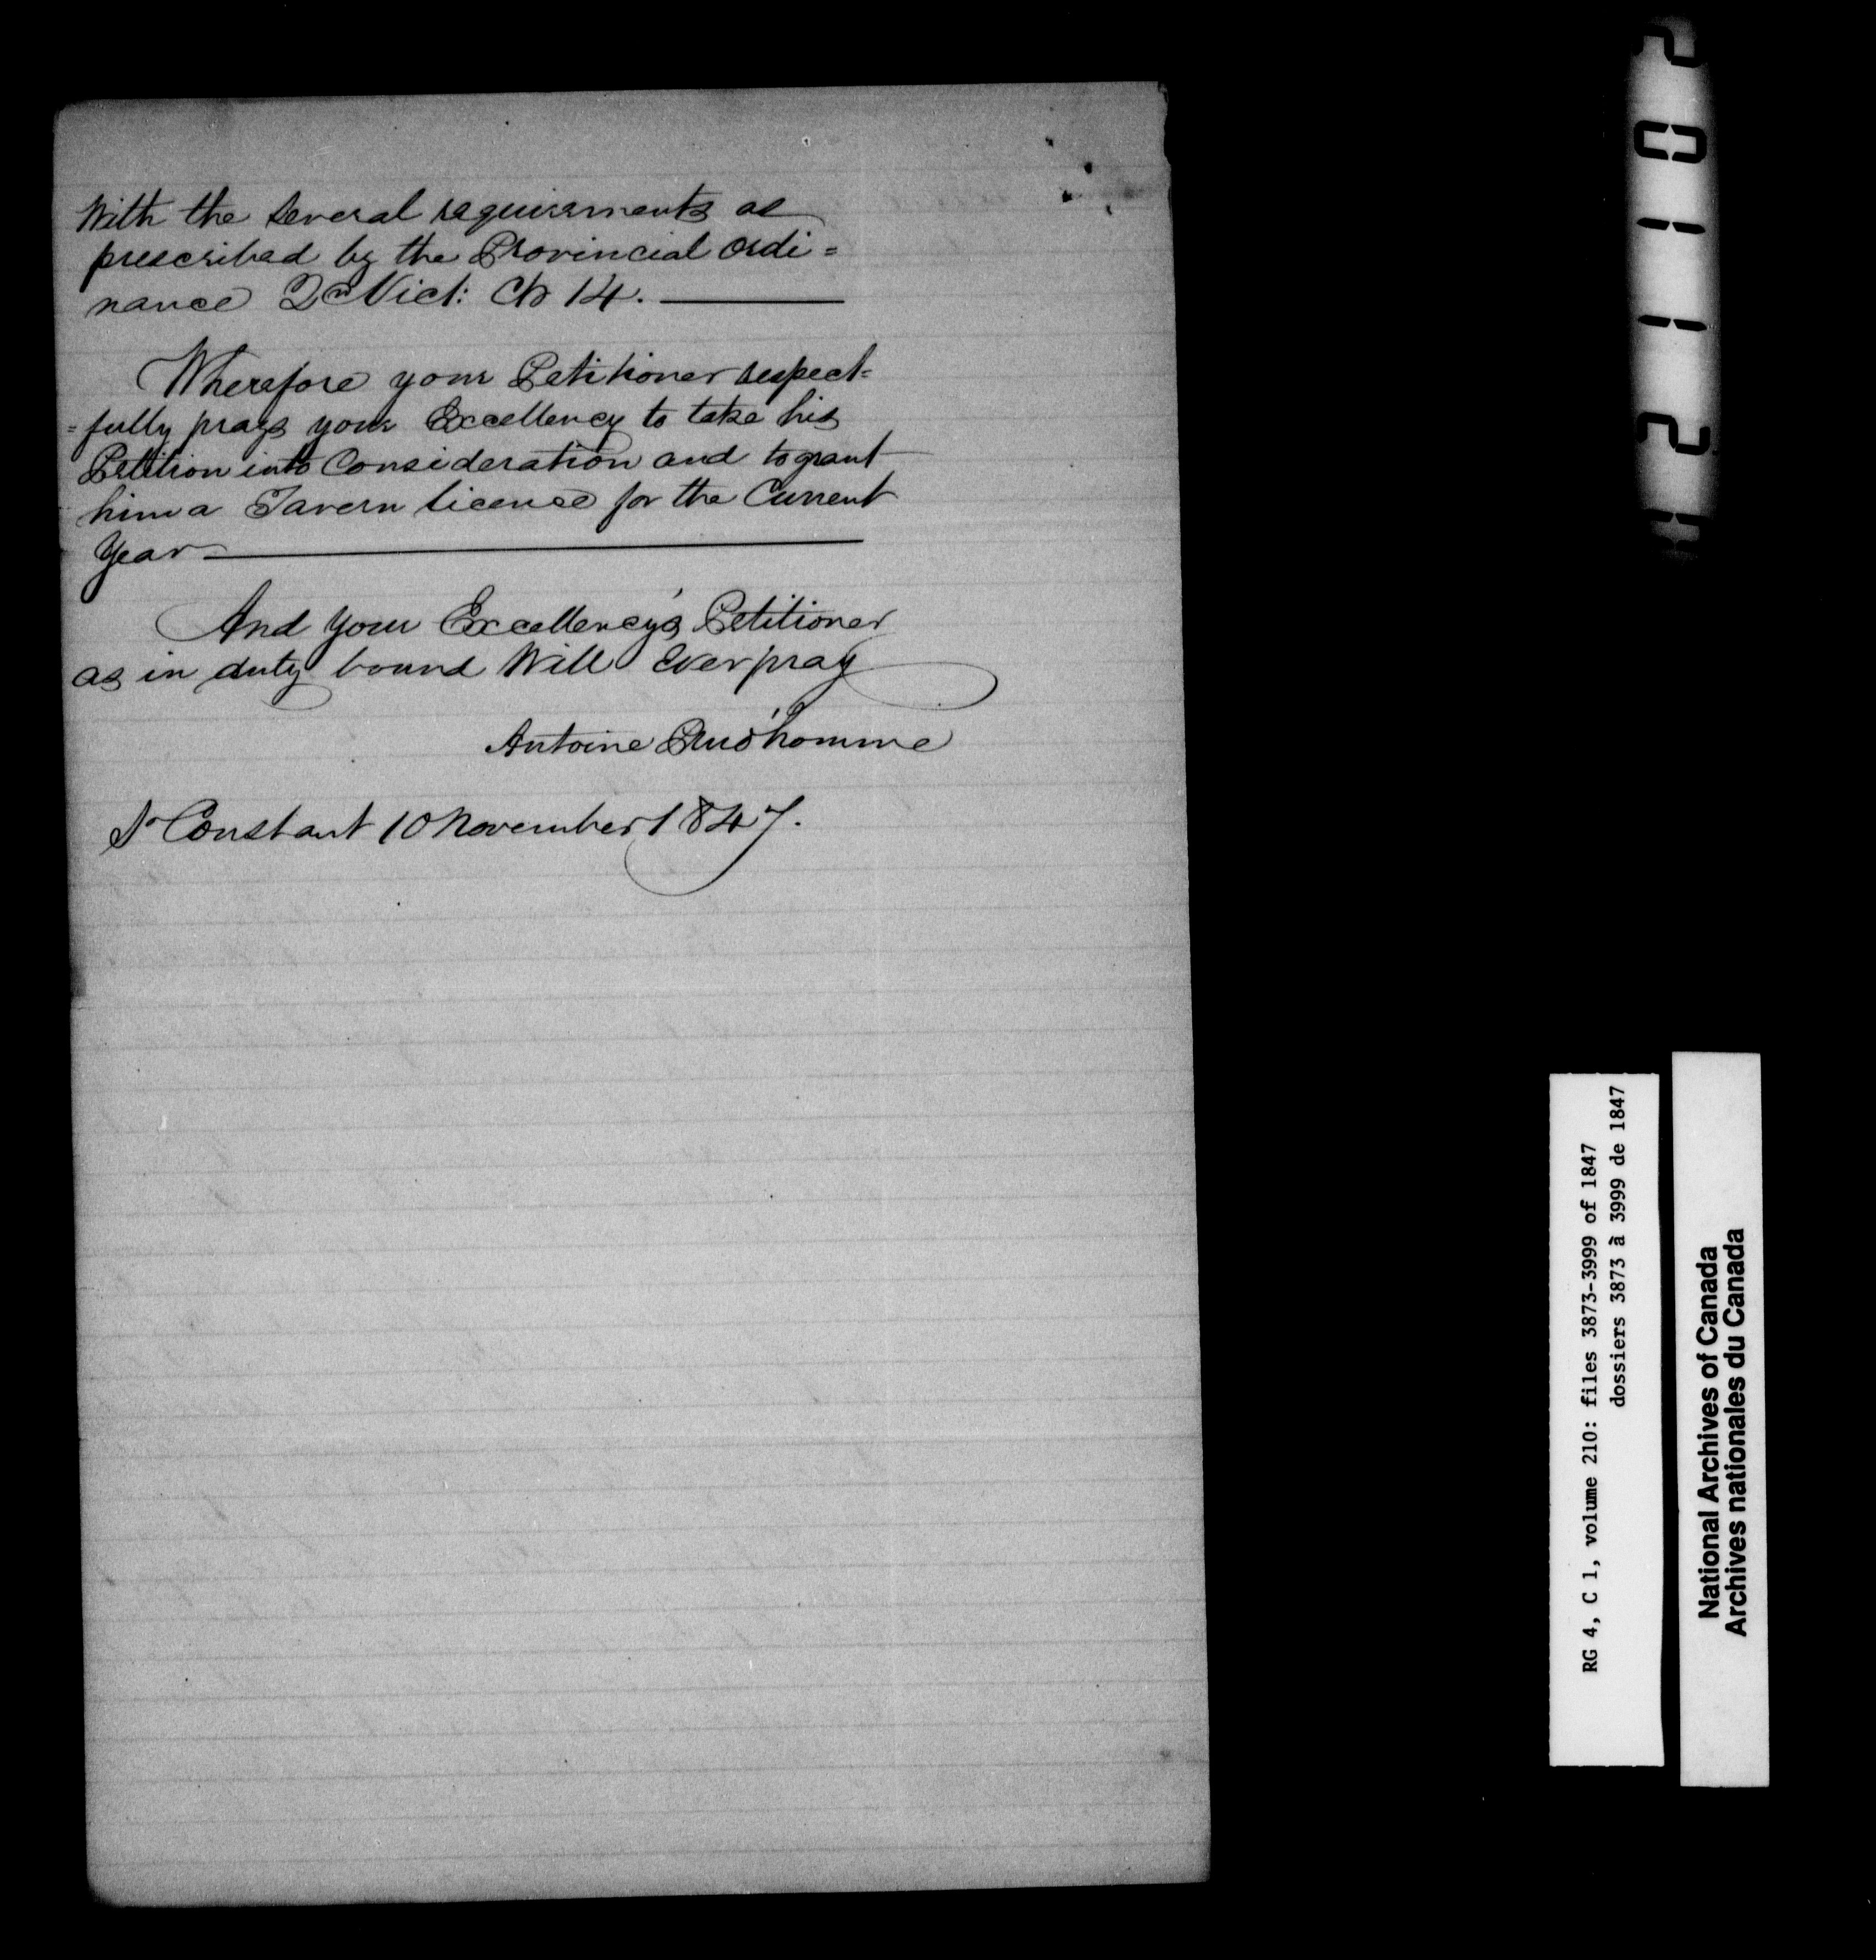 With the several requirements as
prescribed by the Provincial Ordi=
nance 2d Vict: Ch 14.
Wherefore your Petitioner respect=
=fully prays your Excellency to take his
Petition into Consideration and to grant
him a Tavern licence for the Current
Year
And your Excellency's Petitioner
as in duty bound Will Ever pray
Antoine Prud'homme
St Constant 10 November 1847.
RG 4, C 1, volume 210: files 3873-3999 of 1847
dossiers 3873 à 3999 de 1847
National Archives of Canada
Archives nationales du Canada